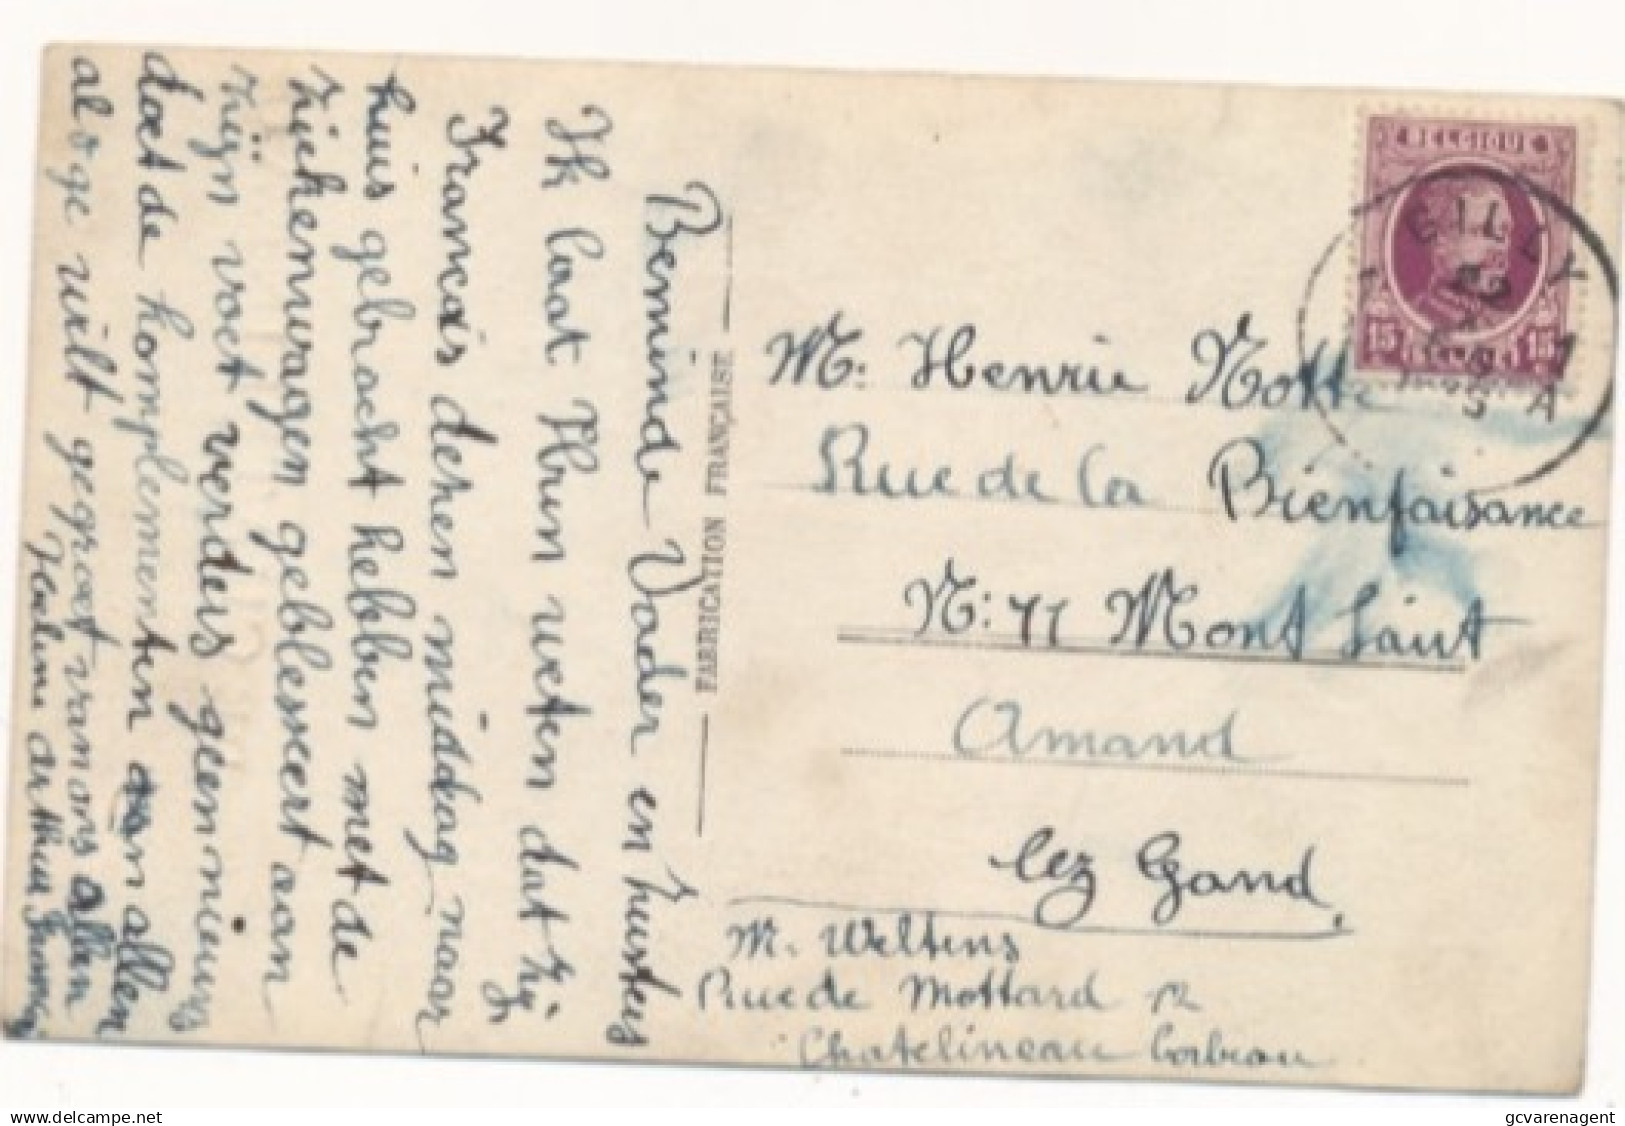 Beminde Vader en Zusters
Ik laat Hun weten dat zij
Francois dezen middag naar
huis gebracht hebben met de
ziekenwagen geblesseert aan
zijn voet verders geen nieuws
doet de komplementen aan allen
aloze vilt gegroet van ons allen
arthur
FABRICATION FRANÇAISE
BELGIQUE
15 BELGIË 15
GILLY
1 A
M: Henrie Notte
Rue de la Bienfaisance
N: 77 Mont Saint
Amand
lez Gand,
M. Weltens
Rue de Mottard 12
Chatelineau Corbeau
gcvarenagent